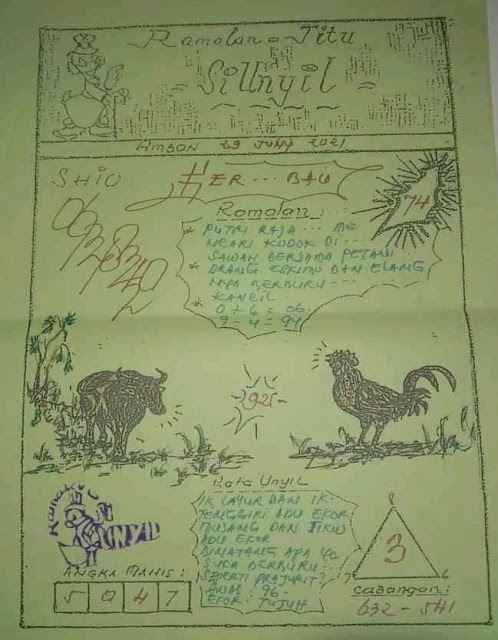 Ramalan = Jitu
SiUnyil
AMBON 29 JULY 2021
SHIO:
HER --- BAU
74
Ramalan:
* PUTRI RAJA --- ME
NCARI KODOK DI ---
SAWAH BERSAMA PETANI
* ORANG ESKIMO DAN ELANG
NYA BERBURU ---
* KANCIL
0 + 6 = 06.
9 = 4 = 94
92
Kata Unyil
IK LAYUR DAN IK.
TENGGIRI ADU EKOR
MUSANG DAN TIKUS
ADU EKOR
BINATANG APA YG
SUKA BERBURU --
SEPERTI PRAJURIT?
AWAS: 96.
EKOR: TUJUH
Ramalan
UNYIL
ANGKA MANIS:
5 0 4 7
8
3
7
6
Cadangan:
632 - 541